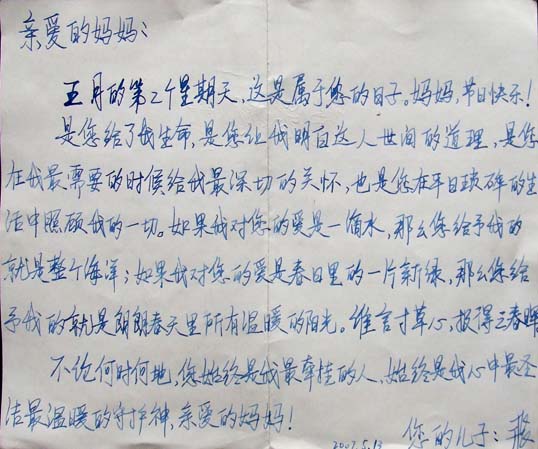 亲爱的妈妈：
五月的第2个星期天，这是属于您的日子。妈妈，节日快乐！
是您给了我生命，是您让我明白这人世间的道理，是您
在我最需要的时候给我最深切的关怀，也是您在平日琐碎的生
活中照顾我的一切。如果我对您的爱是一滴水，那么您给予我的
就是整个海洋；如果我对您的爱是春日里的一片新绿，那么您给
予我的就是朗朗春天里所有温暖的阳光。谁言寸草心，报得三春晖
不论何时何地，您始终是我最牵挂的人，始终是我心中最圣
洁最温暖的守护神，亲爱的妈妈！
您的儿子：
2007.5.13